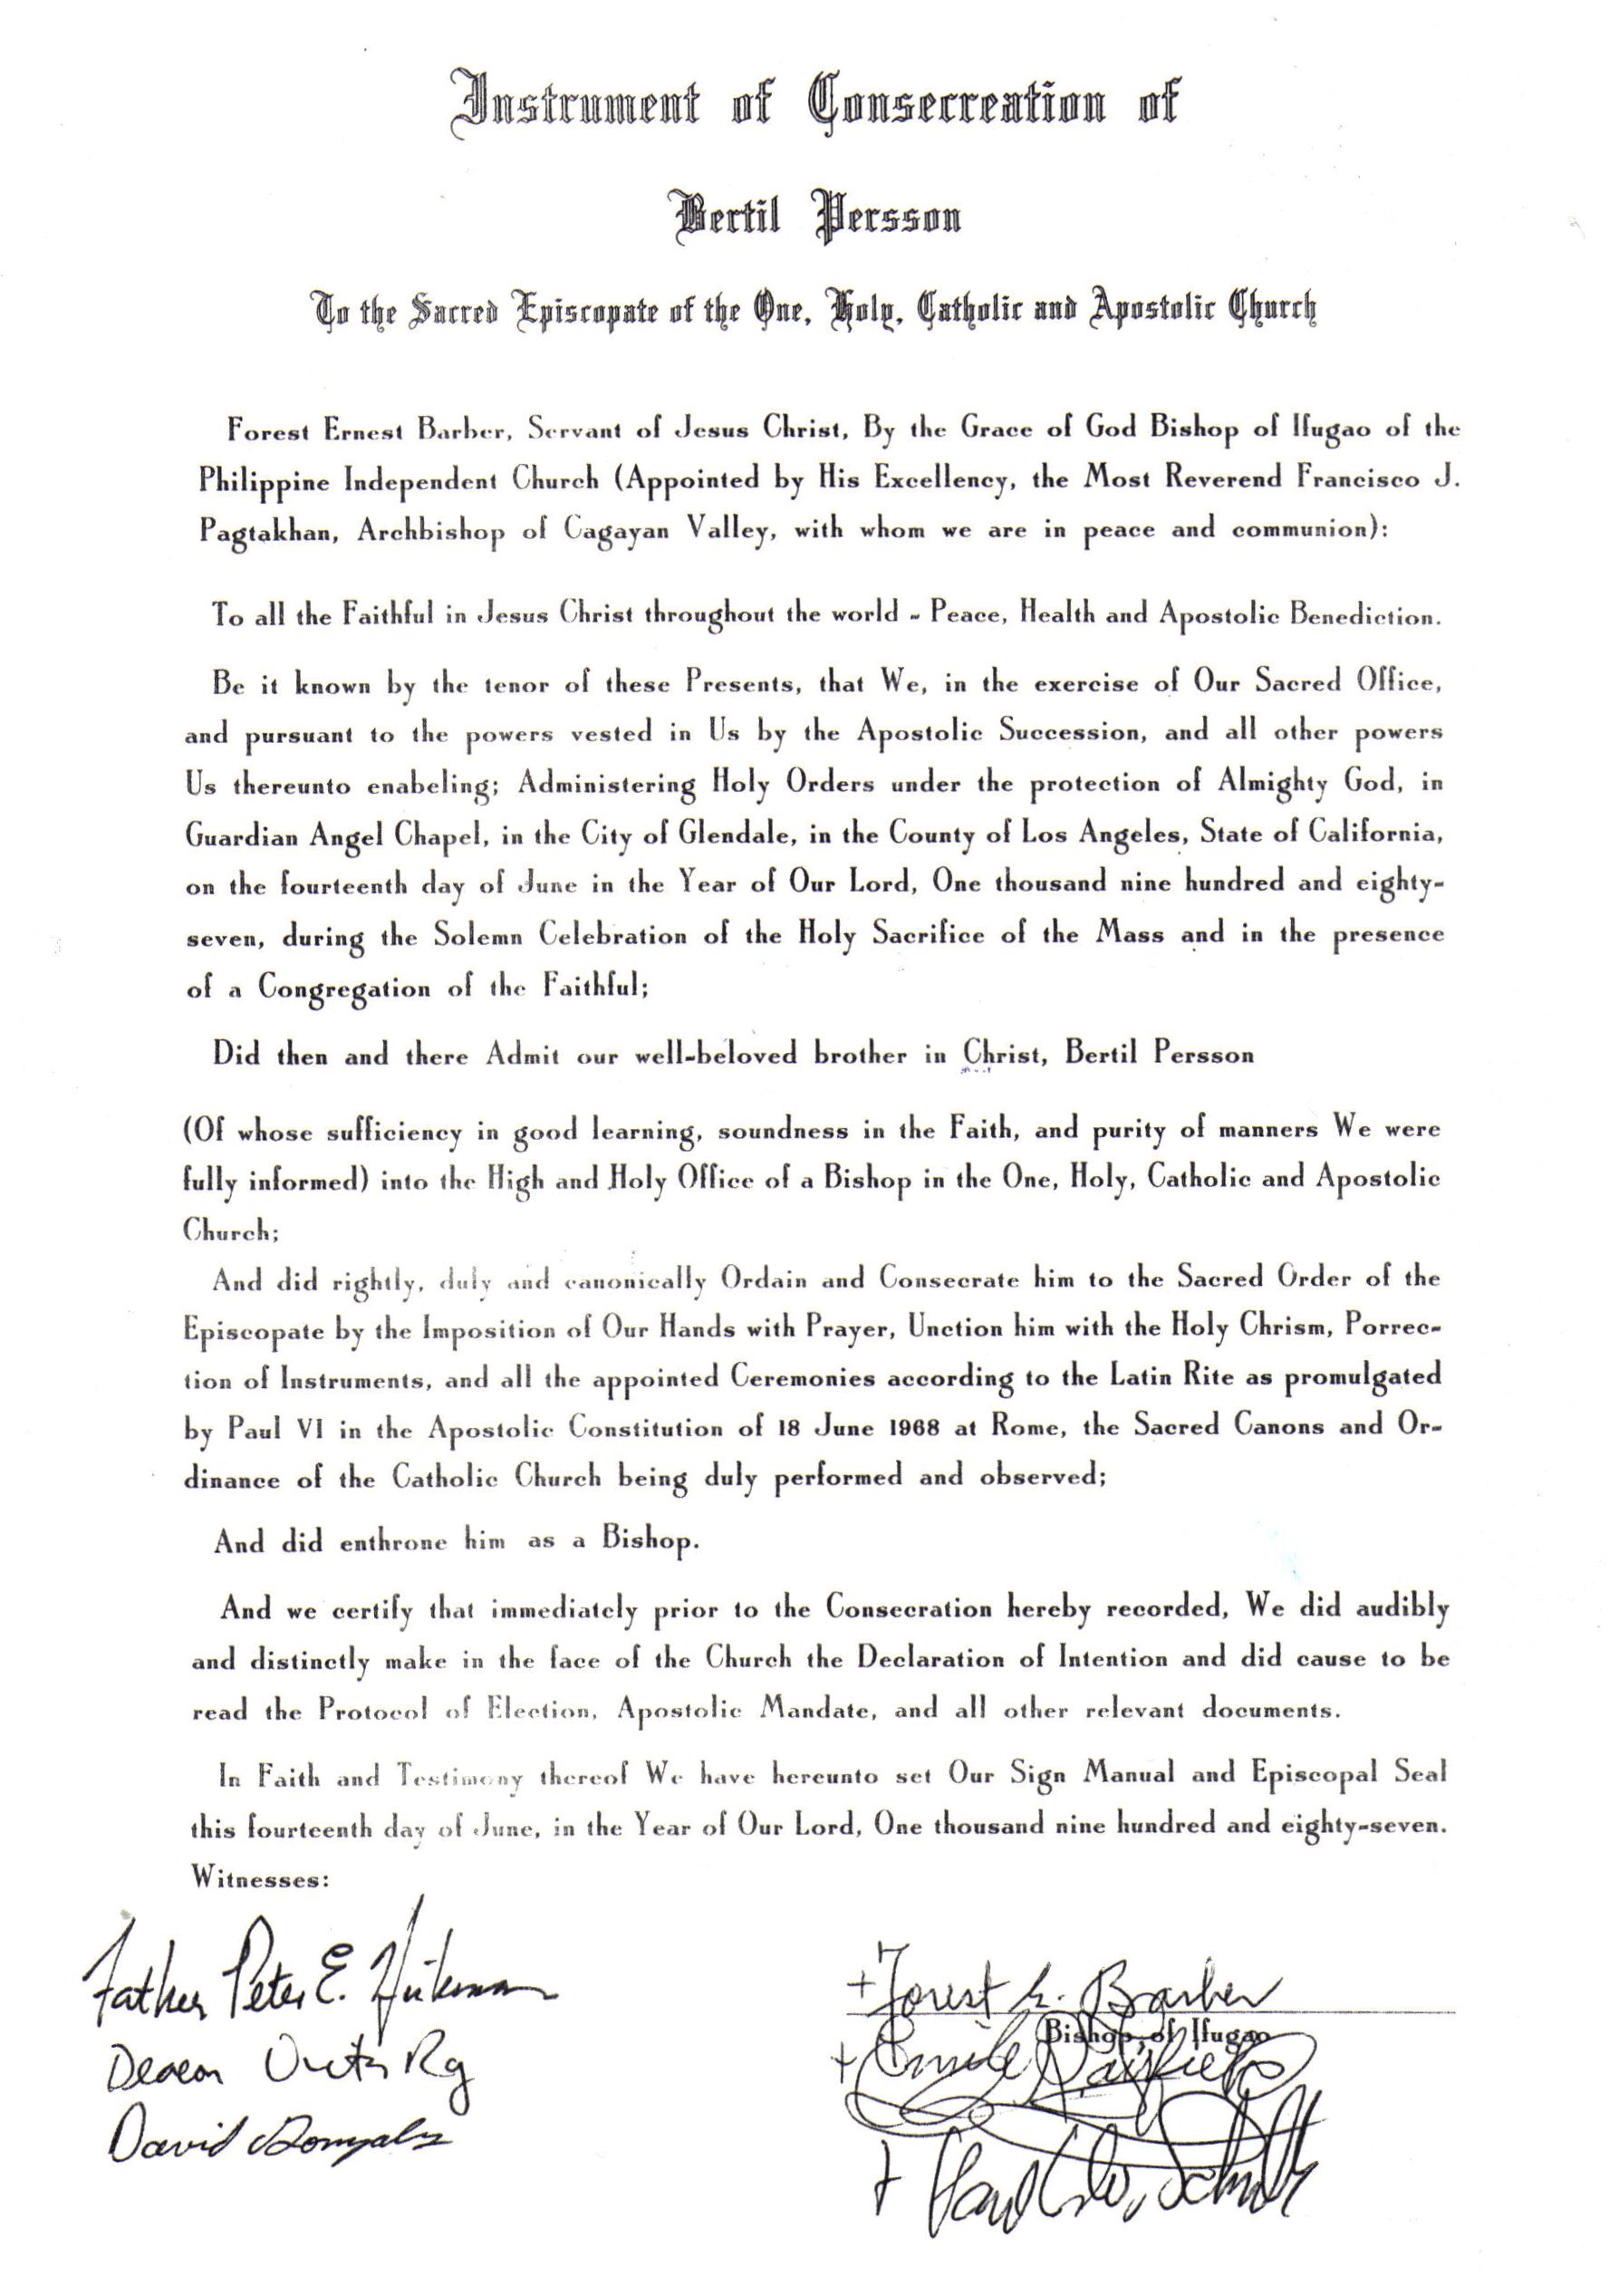 Instrument of Consecreation of
Bertil Persson
To the Sacred Episcopate of the One, Holy, Catholic and Apostolic Church
Forest Ernest Barber, Servant of Jesus Christ, By the Grace of God Bishop of Ifugao of the
Philippine Independent Church (Appointed by His Excellency, the Most Reverend Francisco J.
Pagtakhan, Archbishop of Cagayan Valley, with whom we are in peace and communion):
To all the Faithful in Jesus Christ throughout the world - Peace, Health and Apostolic Benediction.
Be it known by the tenor of these Presents, that We, in the exercise of Our Sacred Office,
and pursuant to the powers vested in Us by the Apostolic Succession, and all other powers
Us thereunto enabeling; Administering Holy Orders under the protection of Almighty God, in
Guardian Angel Chapel, in the City of Glendale, in the County of Los Angeles, State of California,
on the fourteenth day of June in the Year of Our Lord, One thousand nine hundred and eighty-
seven, during the Solemn Celebration of the Holy Sacrifice of the Mass and in the presence
of a Congregation of the Faithful;
Did then and there Admit our well-beloved brother in Christ, Bertil Persson
(Of whose sufficiency in good learning, soundness in the Faith, and purity of manners We were
fully informed) into the High and Holy Office of a Bishop in the One, Holy, Catholic and Apostolic
Church;
And did rightly, duly and canonically Ordain and Consecrate him to the Sacred Order of the
Episcopate by the Imposition of Our Hands with Prayer, Unction him with the Holy Chrism, Porrec-
tion of Instruments, and all the appointed Ceremonies according to the Latin Rite as promulgated
by Paul VI in the Apostolic Constitution of 18 June 1968 at Rome, the Sacred Canons and Or-
dinance of the Catholic Church being duly performed and observed;
And did enthrone him as a Bishop.
And we certify that immediately prior to the Consecration hereby recorded, We did audibly
and distinctly make in the face of the Church the Declaration of Intention and did cause to be
read the Protocol of Election, Apostolic Mandate, and all other relevant documents.
In Faith and Testimony thereof We have hereunto set Our Sign Manual and Episcopal Seal
this fourteenth day of June, in the Year of Our Lord, One thousand nine hundred and eighty-seven.
Witnesses:
Father Peter E. Hickman
+Forest E. Barber
Bishop of Ifugao
+ Emile
David Gonzales
+ Paul